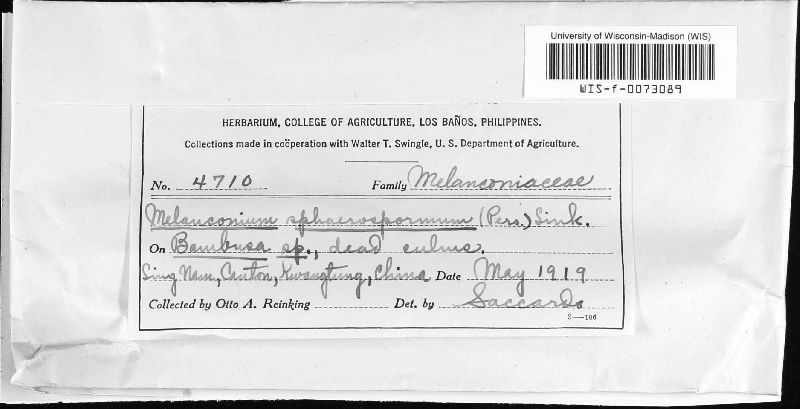 University of Wisconsin-Madison (WIS)
WIS-f-0073089
HERBARIUM, COLLEGE OF AGRICULTURE, LOS BAÑOS, PHILIPPINES.
Collections made in coöperation with Walter T. Swingle, U. S. Department of Agriculture.
No. 4710 Family Melanconiaceae
Melanconium sphaerospermum (Pers.) Link.
On Bambusa sp., dead culms.
Sing Nam, Canton, Kwangtung, China Date May 1919
Collected by Otto A. Reinking Det. by Saccardo
S—106